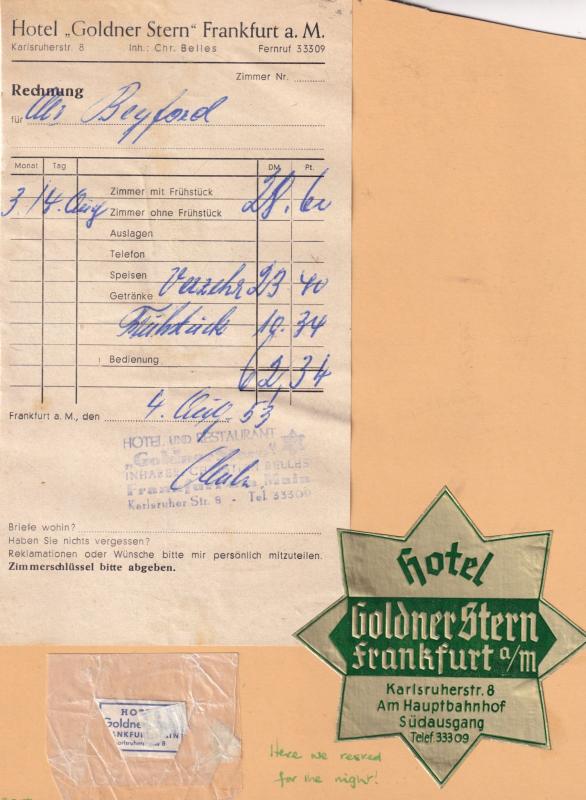 Hotel „Goldner Stern“ Frankfurt a. M.
Karlsruherstr. 8 Inh.: Chr. Belles Fernruf 33309
Zimmer Nr.
Rechnung
für Beyford
Monat Tag DM Pf.
Zimmer mit Frühstück 28.60
3./4. Aug Zimmer ohne Frühstück
Auslagen
Telefon
Speisen Verzehr 23 40
Getränke
Frühstück 10.34
Bedienung
62,34
Frankfurt a. M., den 4. Aug. 53
HOTEL UND RESTAURANT
„Goldner Stern“
INHABER CHRISTIAN BELLES
Frankfurt am Main
Karlsruher Str. 8 - Tel. 33309
Briefe wohin?
Haben Sie nichts vergessen?
Reklamationen oder Wünsche bitte mir persönlich mitzuteilen.
Zimmerschlüssel bitte abgeben.
Hotel
Goldner Stern
Frankfurt a/m
Karlsruherstr. 8
Am Hauptbahnhof
Südausgang
Telef. 33309
HOT
Goldne
FRANKFU IN
8
Here we rested
for the night!